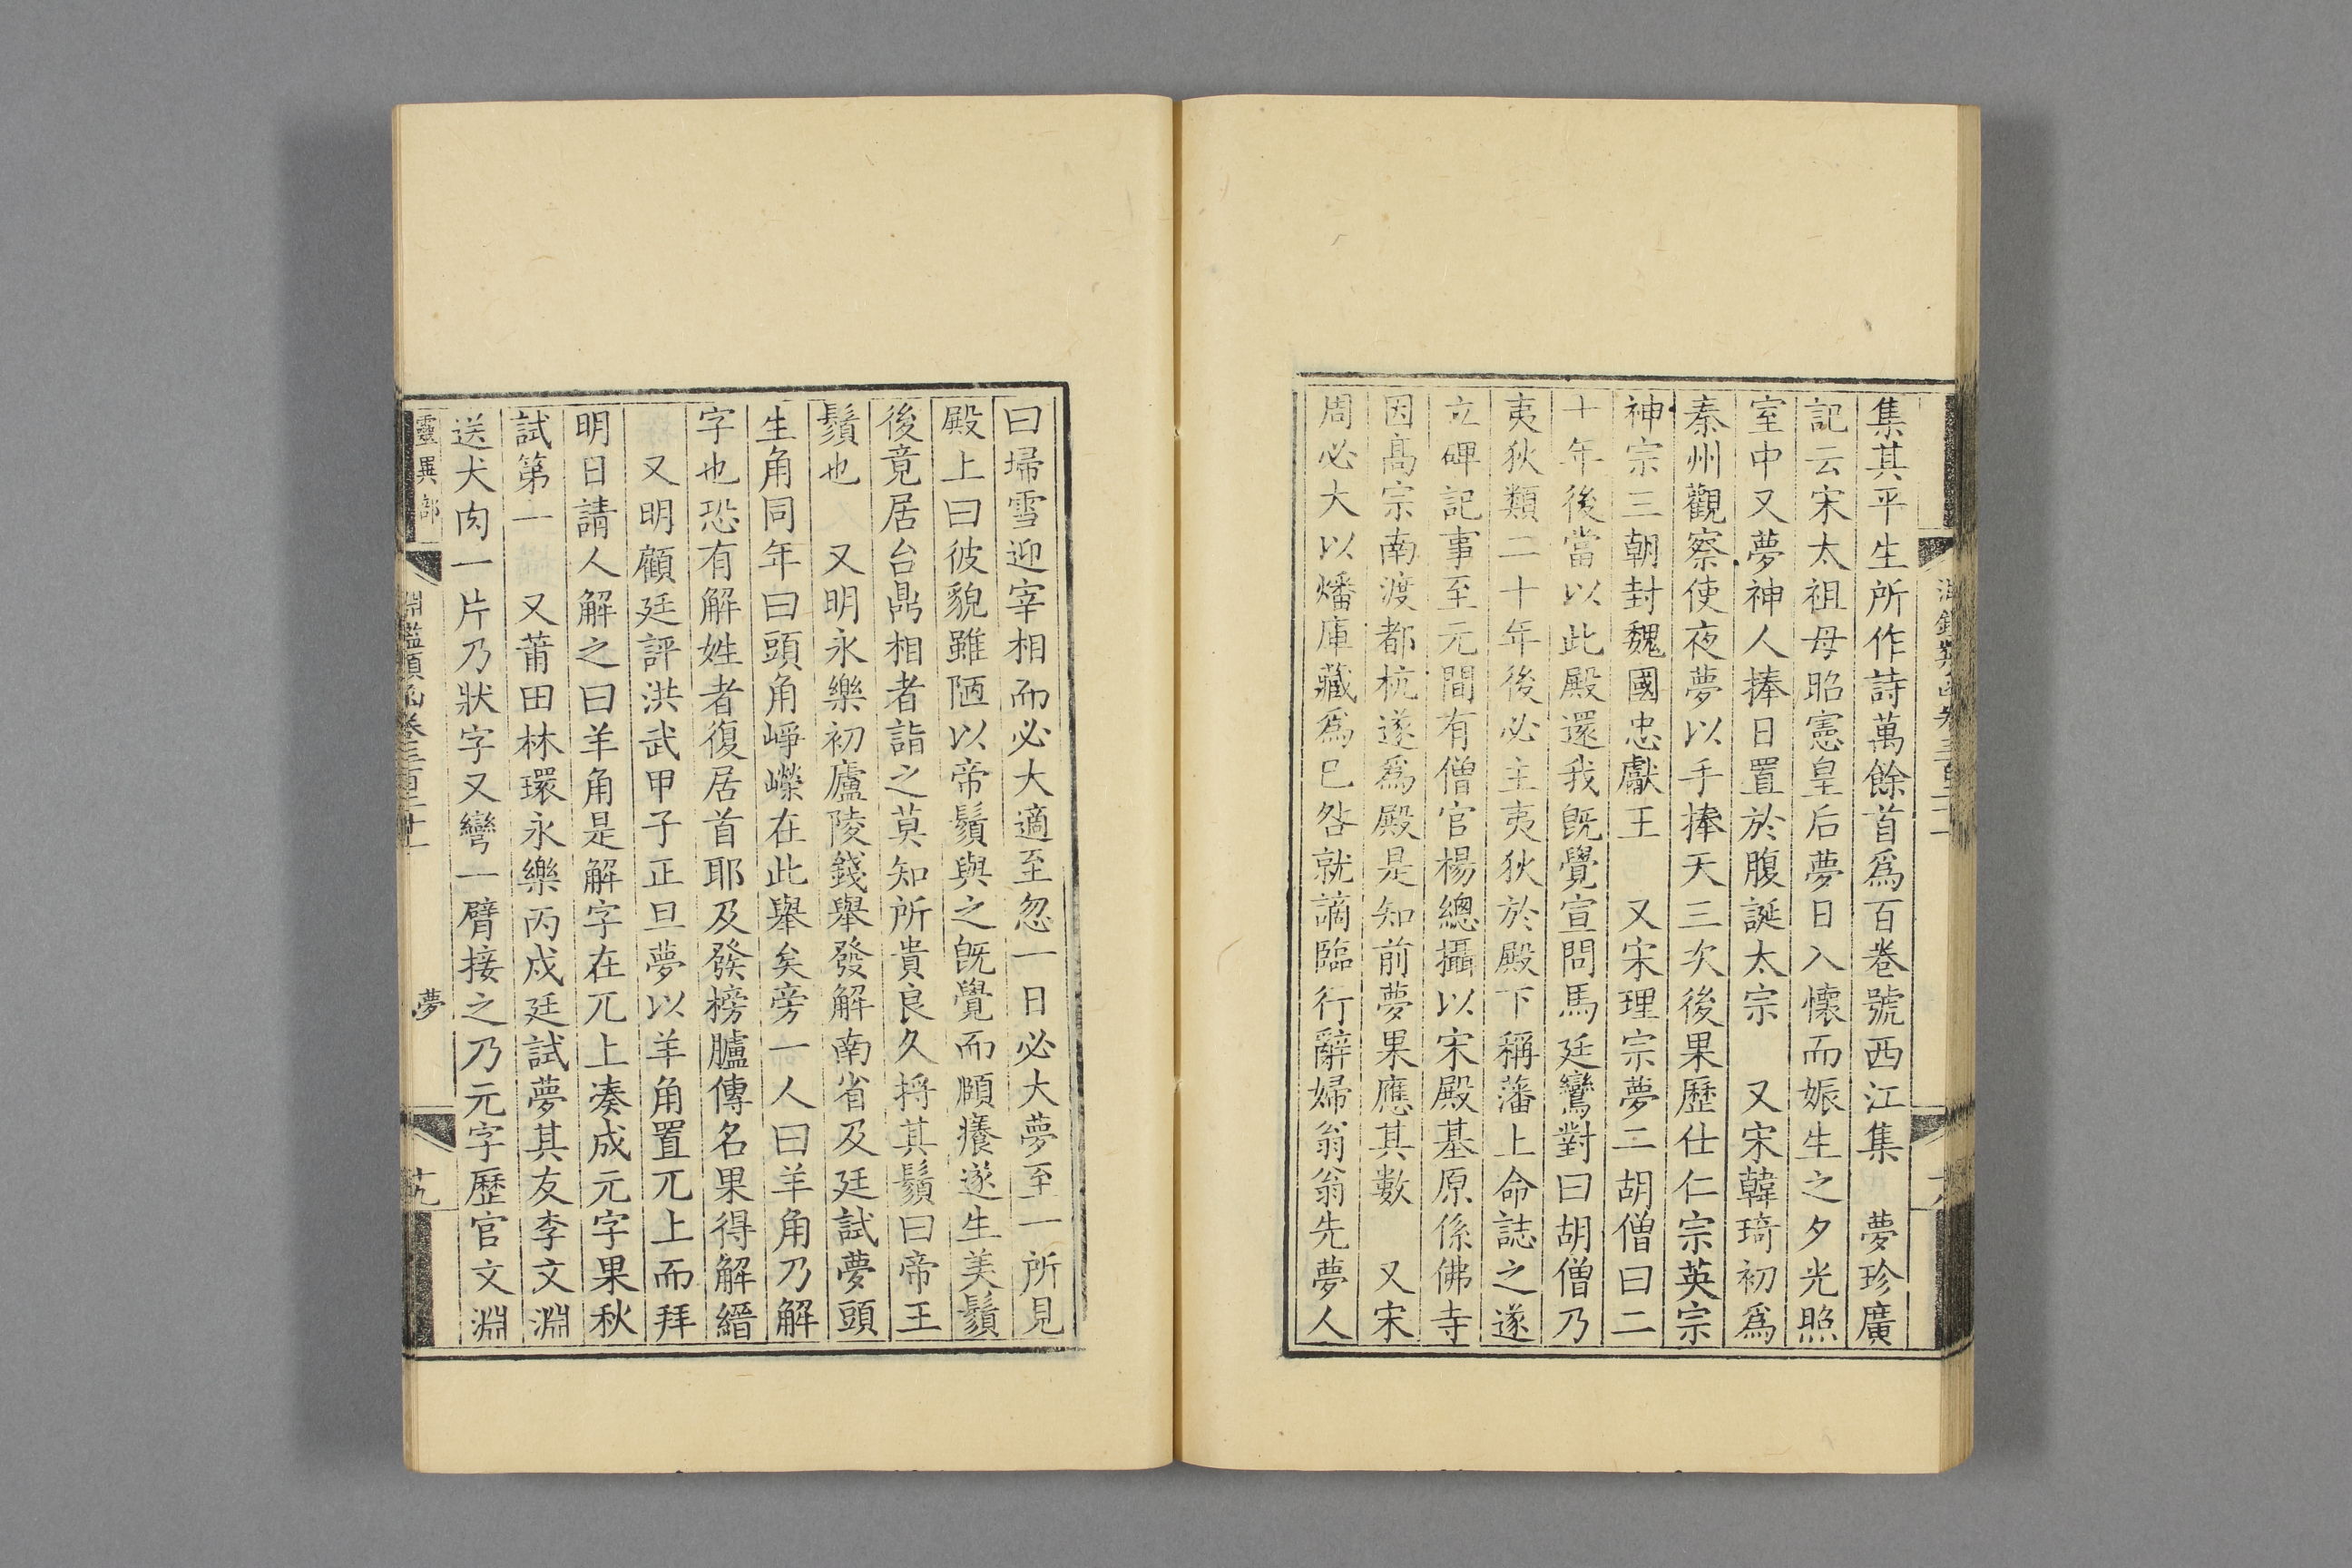 集其平生所作詩萬餘首爲百卷號西江集　夢珍廣
記云宋太祖母昭憲皇后夢日入懷而娠生之夕光照
室中又夢神人捧日置於腹誕太宗　又宋韓琦初爲
秦州觀察使夜夢以手捧天三次後果歷仕仁宗英宗
神宗三朝封魏國忠獻王　又宋理宗夢二胡僧曰二
十年後當以此殿還我既覺宣問馬廷鸞對曰胡僧乃
夷狄類二十年後必主夷狄於殿下稱藩上命誌之遂
立碑記事至元間有僧官楊總攝以宋殿基原係佛寺
因高宗南渡都杭遂爲殿是知前夢果應其數　又宋
周必大以燔庫藏爲已咎就謫臨行辭婦翁翁先夢人
曰埽雪迎宰相而必大適至忽一日必大夢至一所見
殿上曰彼貌雖陋以帝鬚與之既覺而頤癢遂生美鬚
後竟居台鼎相者詣之莫知所貴良久捋其鬚曰帝王
鬚也　又明永樂初廬陵錢舉發解南省及廷試夢頭
生角同年曰頭角崢嶸在此舉矣旁一人曰羊角乃解
字也恐有解姓者復居首耶及發榜臚傳名果得解縉
又明顧廷評洪武甲子正旦夢以羊角置兀上而拜
明日請人解之曰羊角是解字在兀上凑成元字果秋
試第一　又莆田林環永樂丙戍廷試夢其友李文淵
送犬肉一片乃狀字又彎一臂接之乃元字歷官文淵
靈異部　淵鑑類函卷三百二十一　夢　十九